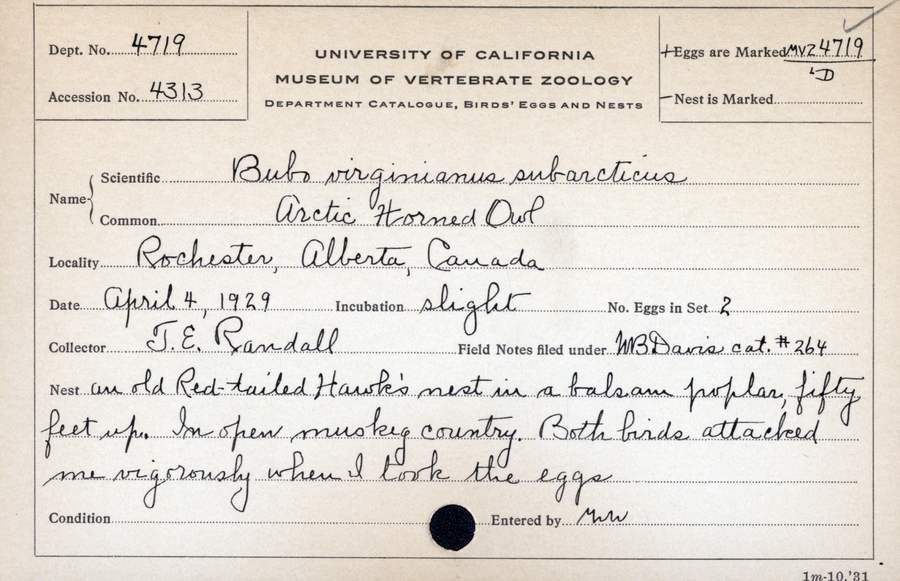 Dept. No. 4719
Accession No. 4313
UNIVERSITY OF CALIFORNIA
MUSEUM OF VERTEBRATE ZOOLOGY
DEPARTMENT CATALOGUE, BIRDS' EGGS AND NESTS
Eggs are Marked MVZ 4719
Nest is Marked
Name
Scientific Bubo virginianus subarcticus
Common Arctic Horned Owl
Locality Rochester, Alberta, Canada
Date April 4, 1929 Incubation slight No. Eggs in Set 2
Collector T.E. Randall Field Notes filed under WB Davis cat. # 264
Nest an old Red-tailed Hawk's nest in a balsam poplar, fifty
feet up. In open muskeg country. Both birds attacked
me vigorously when I took the eggs
Condition Entered by
1m-10,'31